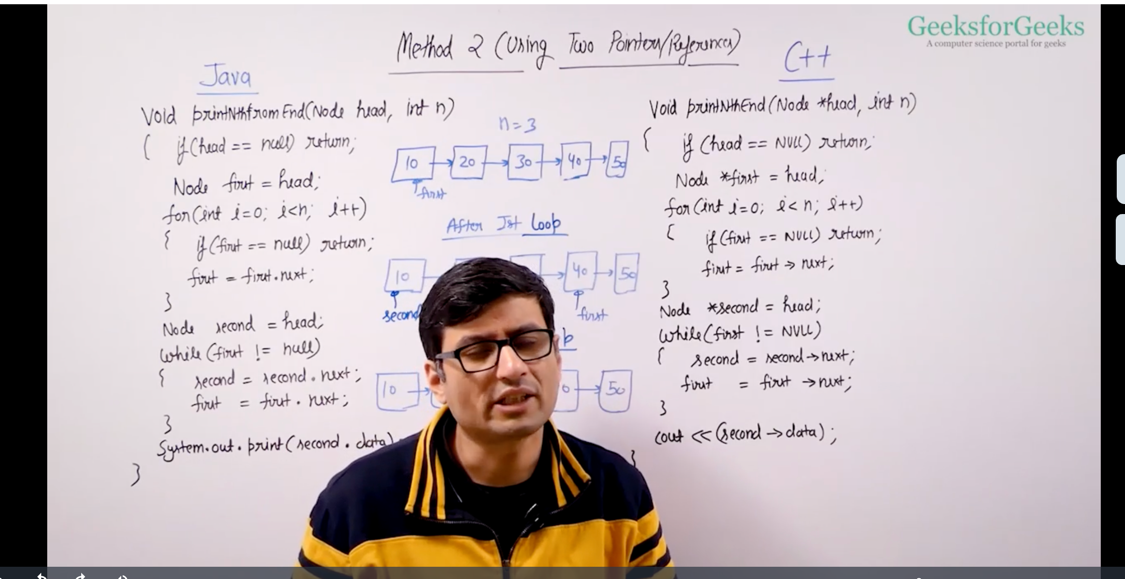 GeeksforGeeks
A computer science portal for geeks
Method 2 (Using Two Pointers/References)
Java
Void printNthfromEnd(Node head, int n)
{ if(head == null) return;
Node first = head;
for(int i=0; i<n; i++)
{ if(first == null) return;
first = first.next;
}
Node second = head;
while(first != null)
{ second = second.next;
first = first.next;
}
System.out.print(second.data)
}
n=3
10 20 30 40 50
first
After Ist Loop
10 40 50
second first
10 50
C++
Void printNthEnd(Node *head, int n)
{ if(head == NULL) return;
Node *first = head;
for(int i=0; i<n; i++)
{ if(first == NULL) return;
first = first->next;
}
Node *second = head;
while(first != NULL)
{ second = second->next;
first = first->next;
}
cout << (second->data);
}